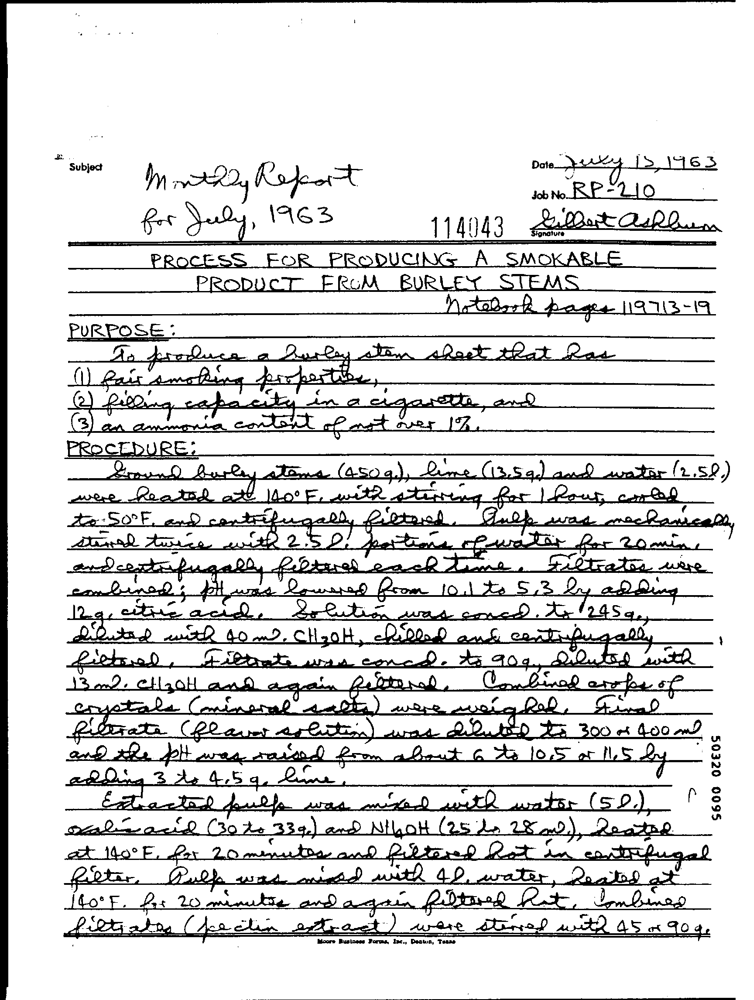 Subject
Monthly Report
for July, 1963
Date July 15, 1963
Job No. RP-210
114043
Gilbert Ashburn
Signature
PROCESS FOR PRODUCING A SMOKABLE
PRODUCT FROM BURLEY STEMS
Notebook pages 119713-19
PURPOSE:
To produce a burley stem sheet that has
(1) fair smoking properties,
(2) filling capacity in a cigarette, and
(3) an ammonia content of not over 1%.
PROCEDURE:
Ground burley stems (450g.), lime (13.5g.) and water (2.5l.)
were heated at 140°F. with stirring for 1 hour, cooled
to 50°F. and centrifugally filtered. Pulp was mechanically
stirred twice with 2.5l. portions of water for 20 min.
and centrifugally filtered each time. Filtrates were
combined; pH was lowered from 10.1 to 5.3 by adding
12g. citric acid. Solution was concd. to 245g.,
diluted with 40 ml. CH3OH, chilled and centrifugally
filtered. Filtrate was concd. to 90g., diluted with
13 ml. CH3OH and again filtered. Combined crops of
crystals (mineral salts) were weighed. Final
filtrate (flavor solution) was diluted to 300 or 400 ml
and the pH was raised from about 6 to 10.5 or 11.5 by
adding 3 to 4.5g. lime.
Extracted pulp was mixed with water (5l.),
oxalic acid (30 to 33g.) and NH4OH (25 to 28 ml.), heated
at 140°F. for 20 minutes and filtered hot in centrifugal
filter. Pulp was mixed with 4l. water, heated at
140°F. for 20 minutes and again filtered hot. Combined
filtrates (pectin extract) were stirred with 45 or 90g.
Moore Business Forms, Inc., Denton, Texas
50320 0095